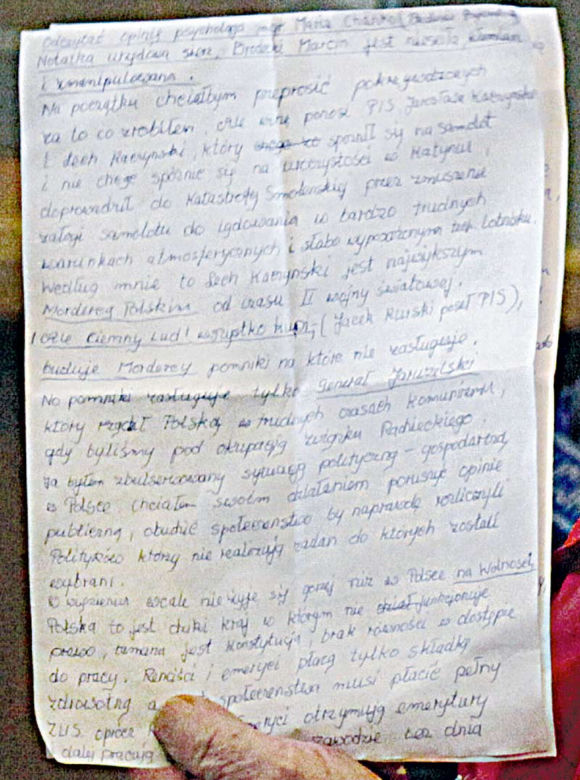 odczytać opinię psychologa Maria
Notatka urzędowa Brodecki Marcin jest
i zmanipulowana.
Na początku chciałbym przeprosić pokrzywdzonych
za to co zrobiłem, ale winę ponosi PIS Jarosław Kaczyński
i Lech Kaczyński, który spóźnił się na samolot
i nie chcąc spóźnić się na uroczystości w Katyniu,
doprowadził do Katastrofy Smoleńskiej przez zmuszenie
załogi samolotu do lądowania w bardzo trudnych
warunkach atmosferycznych i słabo wyposażonym lotnisku.
Według mnie to Lech Kaczyński jest największym
Mordercą Polskim od czasu II wojny światowej.
Ale Ciemny Lud wszystko kupi, (Jacek Kurski poseł PIS),
buduje Mordercy pomniki na które nie zasługuje.
Na pomniki zasługuje tylko generał Jaruzelski
który rządził Polską w trudnych czasach komunizmu,
gdy byliśmy pod okupacją związku Radzieckiego.
Ja byłem zbulwersowany sytuacją polityczną-gospodarczą
w Polsce, chciałem swoim działaniem poruszyć opinie
publiczną, obudzić społeczeństwo by naprawdę rozliczyli
Polityków którzy nie realizują zadań do których zostali
wybrani.
W więzieniu wcale nie żyje się gorzej niż w Polsce na Wolności,
Polska to jest dziki kraj w którym nie funkcjonuje
prawo, łamana jest Konstytucja, brak równości w dostępie
do pracy. Renciści i emeryci płacą tylko składkę
zdrowotną a społeczeństwa musi płacić pełny
ZUS oprócz emeryci otrzymują emerytury
i dalej pracują zawodzie bez dnia